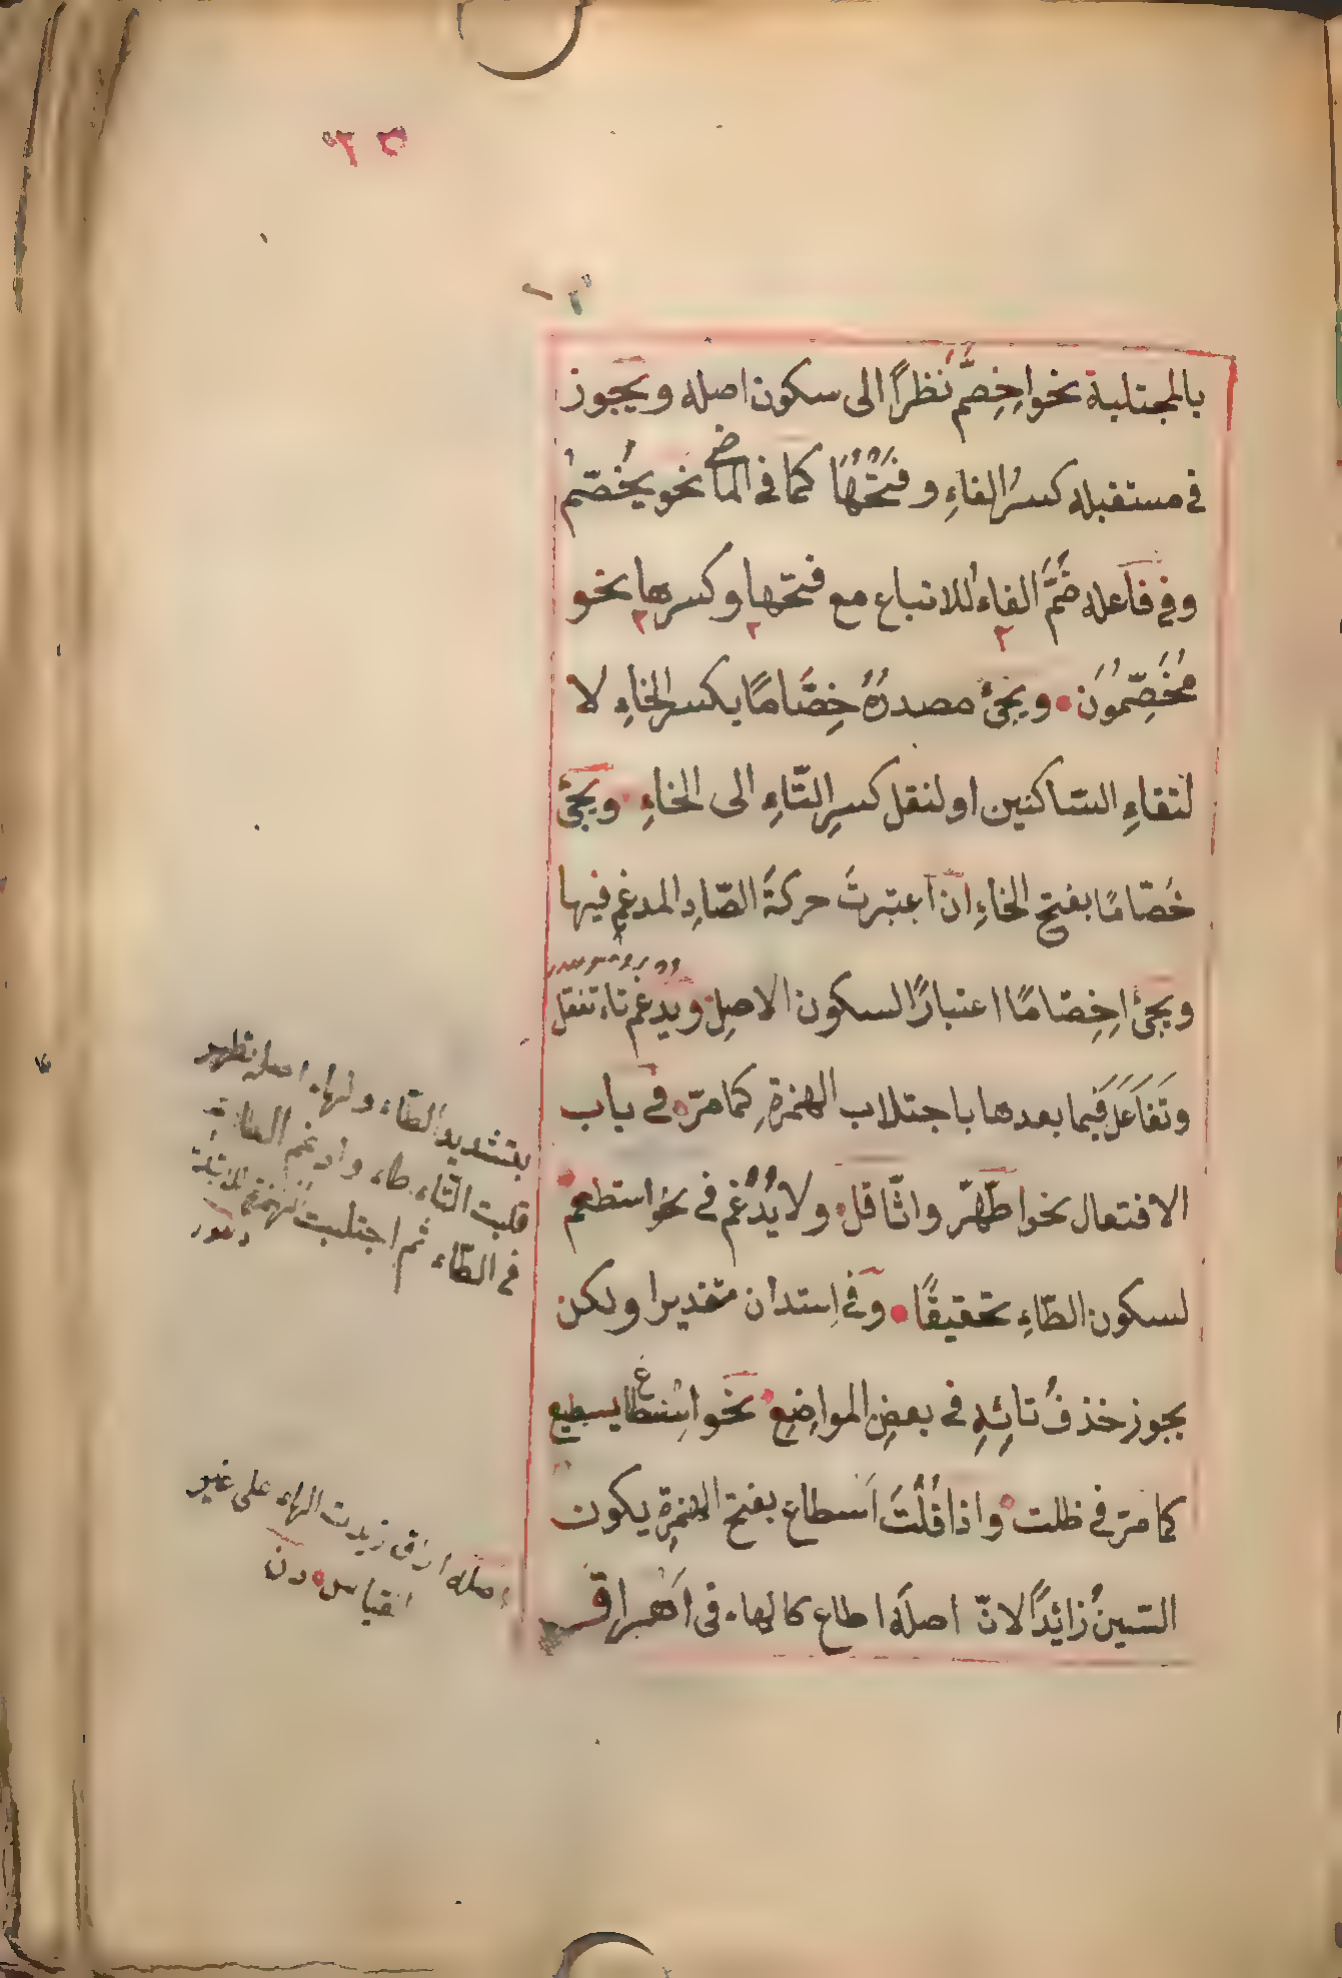 بالمجتلبة نحو اِخِصَّمَ نظرًا الى سكون اصله ويجوز
فى مستقبله كسرُ الفاءِ وفَتْحُهَا كما فى الماضى نحو يَخْصّمُ
وفى فاعله ضَمَّ الفاء للاتباع مع فتحها وكسرها نحو
مُخَصِّمُونَ ويجئ مصدرُهُ خِصَّامًا بكسر الخاءِ لا
لتقاءِ السّاكنين او لنقل كسرِ التّاءِ الى الخاءِ ويجئ
خَصّامًا بفتح الخاءِ ان اعتبرتَ حركةَ الصّادِ المدغم فيها
ويجئ اِخِصّامًا اعتبارًا لسكون الاصل ويُدغم تاء تفعّل
وتَفَاعَلَ فيما بعدها باجتلاب الهمزةِ كما مرّ فى باب
الافتعال نحو اطّهّر واثّاقل ولا يُدْغم فى نحو استطعم
لسكون الطّاءِ تحقيقًا وفى اِستدان تقديرا ولكن
يجوز حذفُ تائِهِ فى بعضِ المواضِعِ نحو اِسْطاع يسطيع
كما مرّ فى ظلت واذا قُلْتَ اَسطاع بفتح الهمزةِ يكون
السّينُ زائِدًا لانّ اصلَه اطاع كالهاء فى اَهْراق
بتشديد الطّاء والهاء اصله تطهر
قلبت التّاء طاء وادغم الطاء
فى الطّاء ثم اجتلبت الهمزة للابتداء
اصله اراق زيدت الهاء على غير
القياس